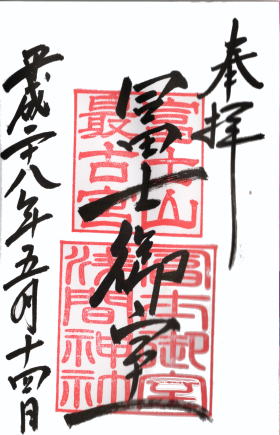 奉拝
冨士山
最古宮
冨士御室
冨士御室
浅間神社
平成二十八年五月十四日